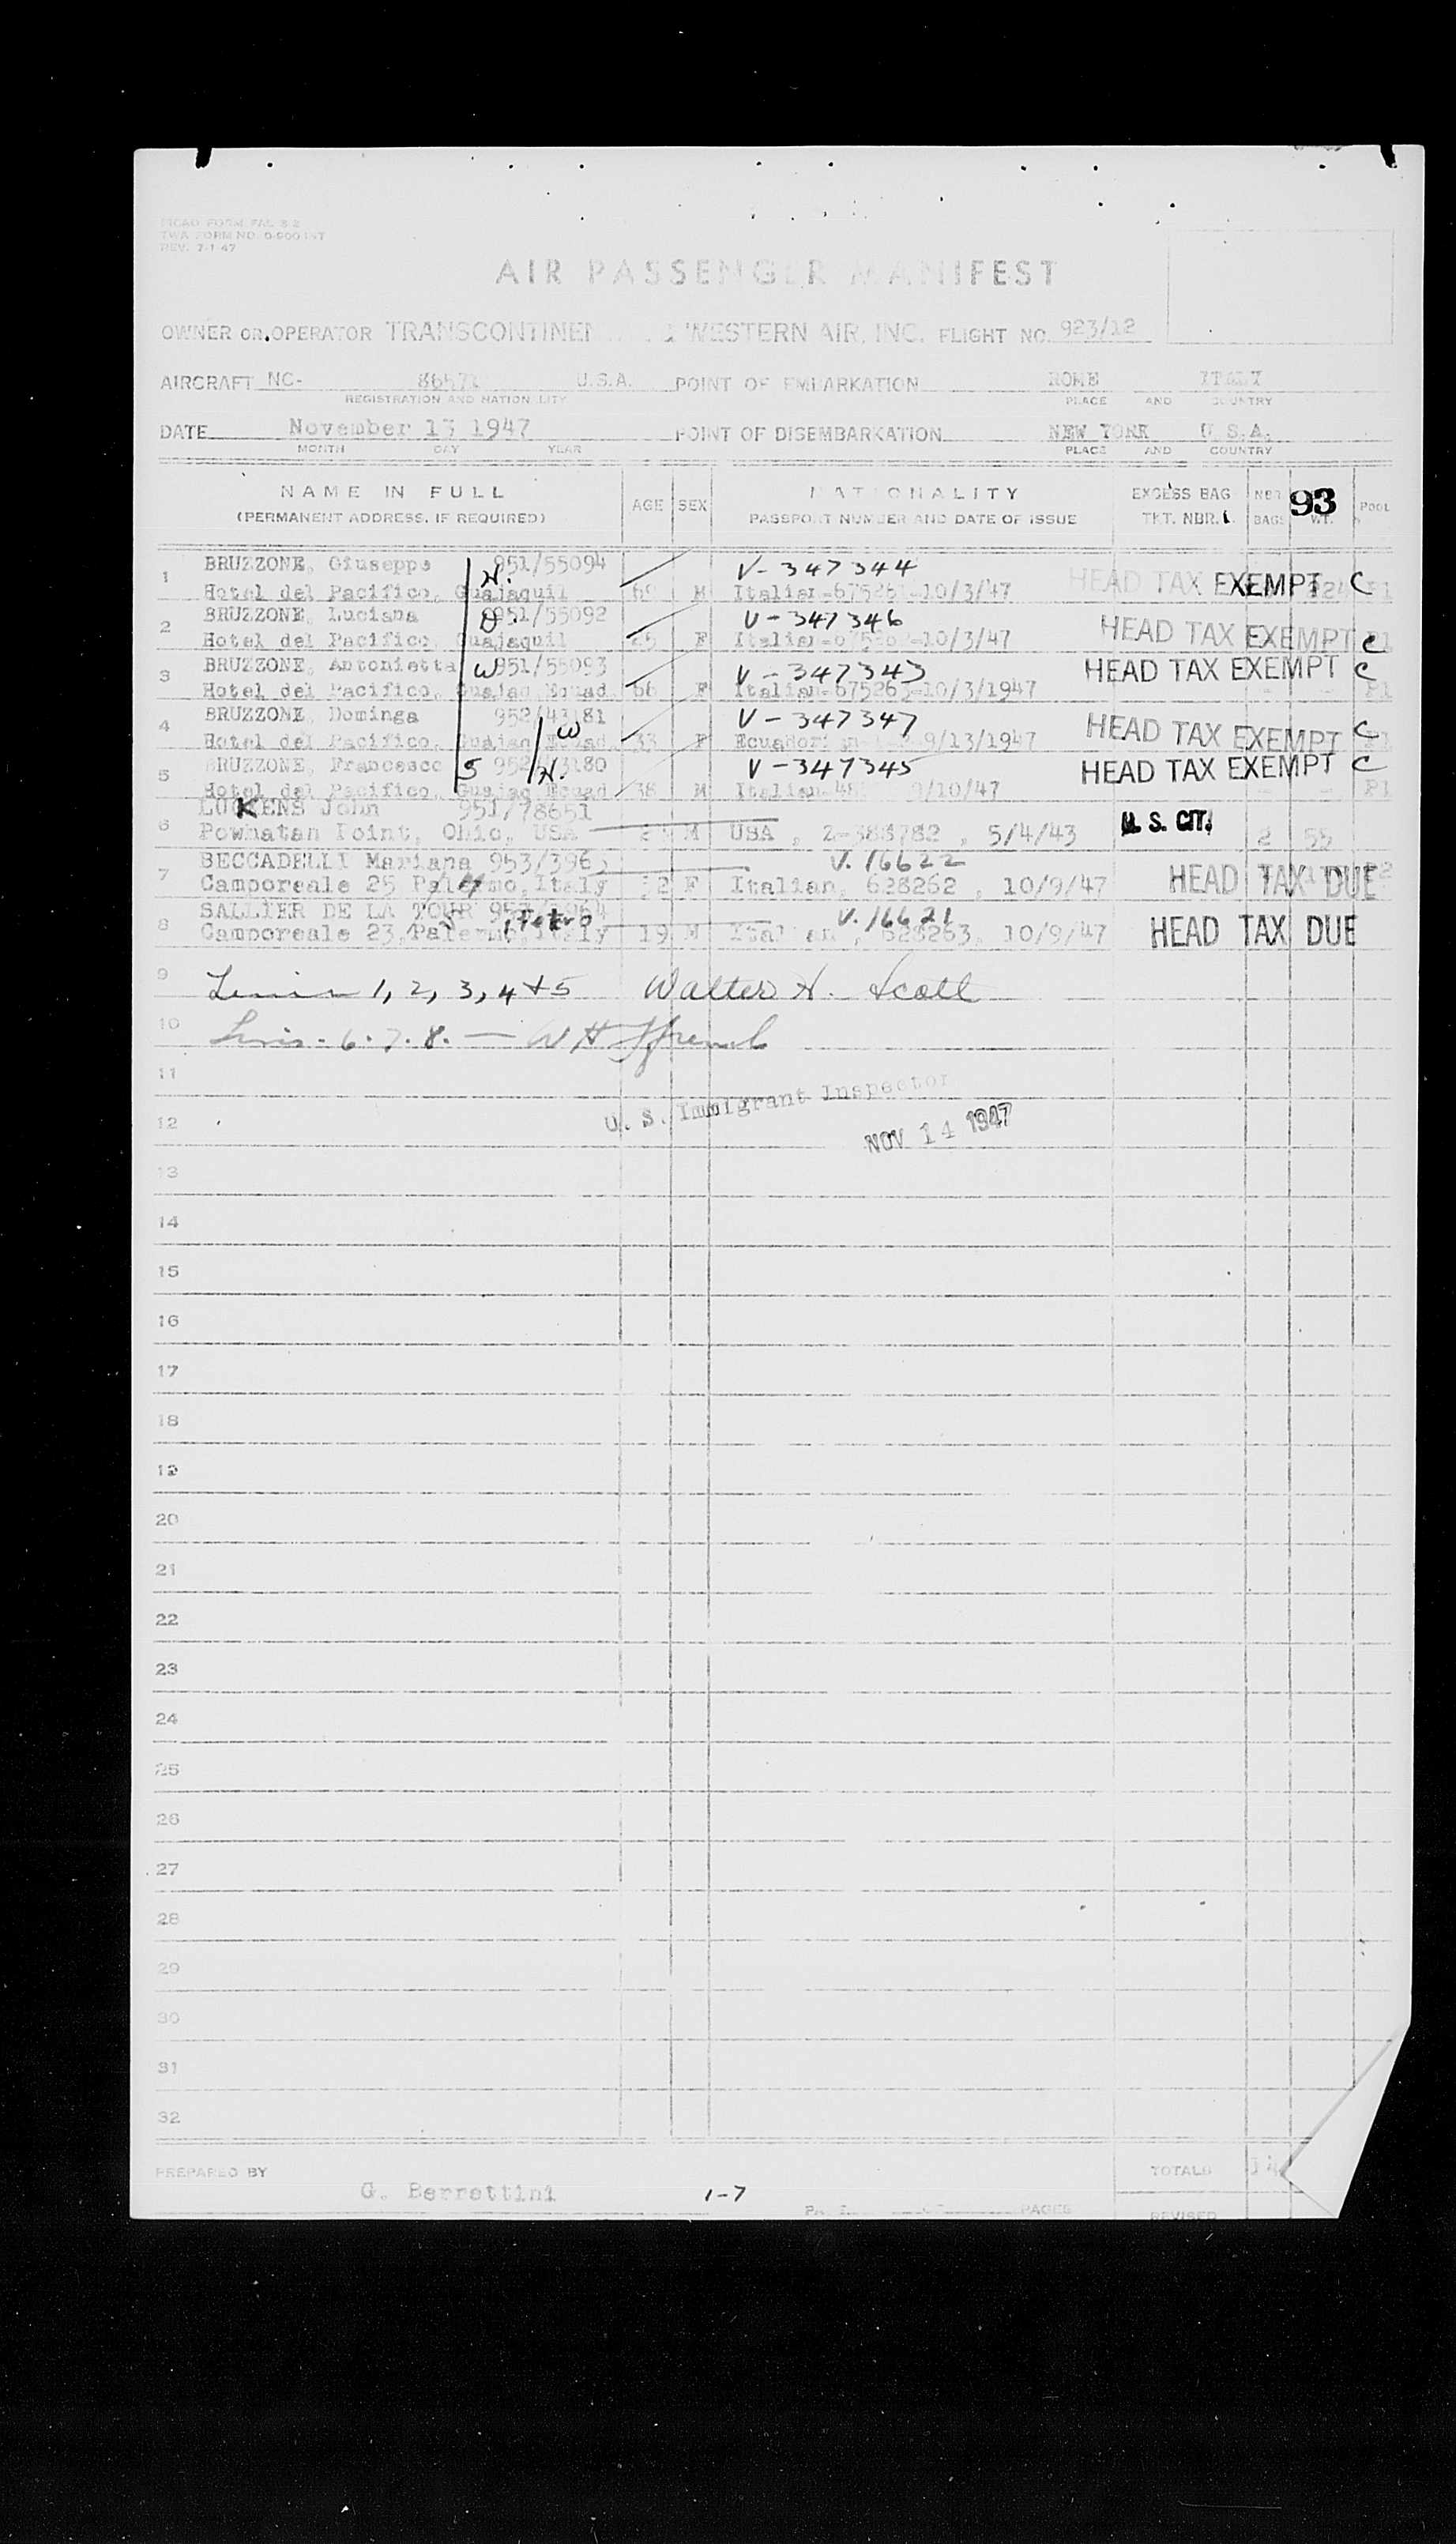 ICAO FORM FAL 3-2
TWA FORM NO.
REV. 7-1-47
AIR PASSENGER MANIFEST
OWNER OR OPERATOR TRANSCONTINEN & WESTERN AIR, INC. FLIGHT NO. 923/12
AIRCRAFT NC- U.S.A. POINT OF EMBARKATION ROME ITALY
REGISTRATION AND NATIONALITY PLACE AND COUNTRY
DATE November 13 1947 POINT OF DISEMBARKATION NEW YORK U.S.A.
MONTH DAY YEAR PLACE AND COUNTRY
NAME IN FULL AGE SEX NATIONALITY EXCESS BAG NBR 93 POOL
(PERMANENT ADDRESS, IF REQUIRED) PASSPORT NUMBER AND DATE OF ISSUE TKT. NBR. BAGS WT.
1 BRUZZONE, Giuseppe 951/55094 V-347344
Hotel del Pacifico, Guajaquil N. 69 M Italian 10/3/47 HEAD TAX EXEMPT C
2 BRUZZONE, Luciana 951/55092 V-347346
Hotel del Pacifico, Guajaquil F Italian 10/3/47 HEAD TAX EXEMPT C
3 BRUZZONE, Antonietta W 951/55093 V-347343 HEAD TAX EXEMPT C
Hotel del Pacifico, Guajaq Ecuad. 66 F Italian-675263-10/3/1947 P1
4 BRUZZONE, Dominga 952/43181 V-347347
Hotel del Pacifico, Guajaq Ecuad. W 33 F Ecuadorian 9/13/1947 HEAD TAX EXEMPT C
5 BRUZZONE, Francesco S 952/43180 N. V-347345 HEAD TAX EXEMPT C
Hotel del Pacifico, Guajaq Ecuad 38 M Italian 9/10/47 P1
6 LUKENS John 951/78651
Powhatan Point, Ohio, USA M USA, 5/4/43 U. S. CIT. 2 55
7 BECCADELLI Mariana V. 16622
Camporeale 25 Palermo, Italy F Italian, 628262, 10/9/47 HEAD TAX DUE
8 SALLIER DE LA TOUR V. 16621
Camporeale 23, Palermo, Italy 19 M Italian, 628263, 10/9/47 HEAD TAX DUE
9 1, 2, 3, 4 + 5 Walter H. Scott
10 6. 7. 8. —
11
U. S. Immigrant Inspector
12 NOV 14 1947
13
14
15
16
17
18
19
20
21
22
23
24
25
26
27
28
29
30
31
32
PREPARED BY G. Berrettini 1-7 PAGES TOTALS 14
REVISED